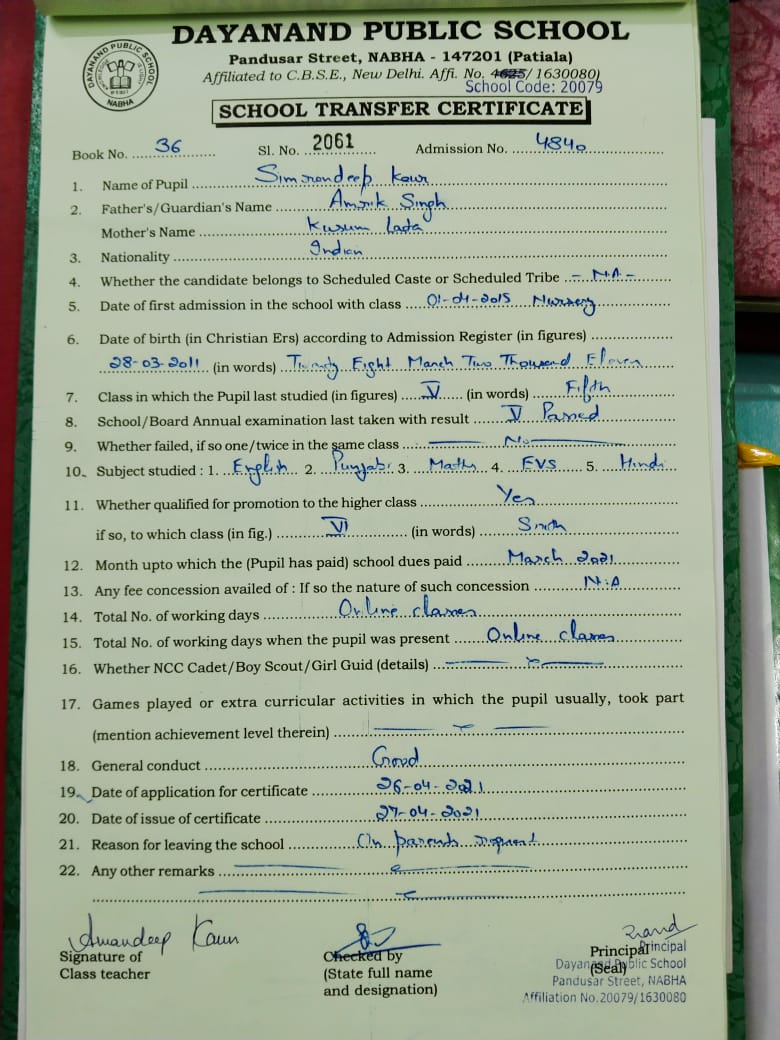 DAYANAND PUBLIC SCHOOL
DAYANAND PUBLIC SCHOOL NABHA
Pandusar Street, NABHA - 147201 (Patiala)
Affiliated to C.B.S.E., New Delhi. Affi. No. 4625/1630080)
School Code: 20079
SCHOOL TRANSFER CERTIFICATE
Book No. 36 Sl. No. 2061 Admission No. 4840
1. Name of Pupil Simrandeep Kaur
2. Father's/Guardian's Name Amrik Singh
Mother's Name Kusum Lata
3. Nationality Indian
4. Whether the candidate belongs to Scheduled Caste or Scheduled Tribe - N.A -
5. Date of first admission in the school with class 01-04-2015 Nursery
6. Date of birth (in Christian Ers) according to Admission Register (in figures)
28-03-2011 (in words) Twenty Eight March Two Thousand Eleven
7. Class in which the Pupil last studied (in figures) V (in words) Fifth
8. School/Board Annual examination last taken with result V Passed
9. Whether failed, if so one/twice in the same class No
10. Subject studied : 1. English 2. Punjabi 3. Maths 4. EVS 5. Hindi
11. Whether qualified for promotion to the higher class Yes
if so, to which class (in fig.) VI (in words) Sixth
12. Month upto which the (Pupil has paid) school dues paid March 2021
13. Any fee concession availed of : If so the nature of such concession N.A
14. Total No. of working days Online classes
15. Total No. of working days when the pupil was present Online classes
16. Whether NCC Cadet/Boy Scout/Girl Guid (details)
17. Games played or extra curricular activities in which the pupil usually, took part
(mention achievement level therein)
18. General conduct Good
19. Date of application for certificate 26-04-2021
20. Date of issue of certificate 27-04-2021
21. Reason for leaving the school On parents request
22. Any other remarks
Amandeep Kaur
Signature of
Class teacher
Checked by
(State full name
and designation)
Principal
(Seal)
Principal
Dayanand Public School
Pandusar Street, NABHA
Affiliation No.20079/1630080